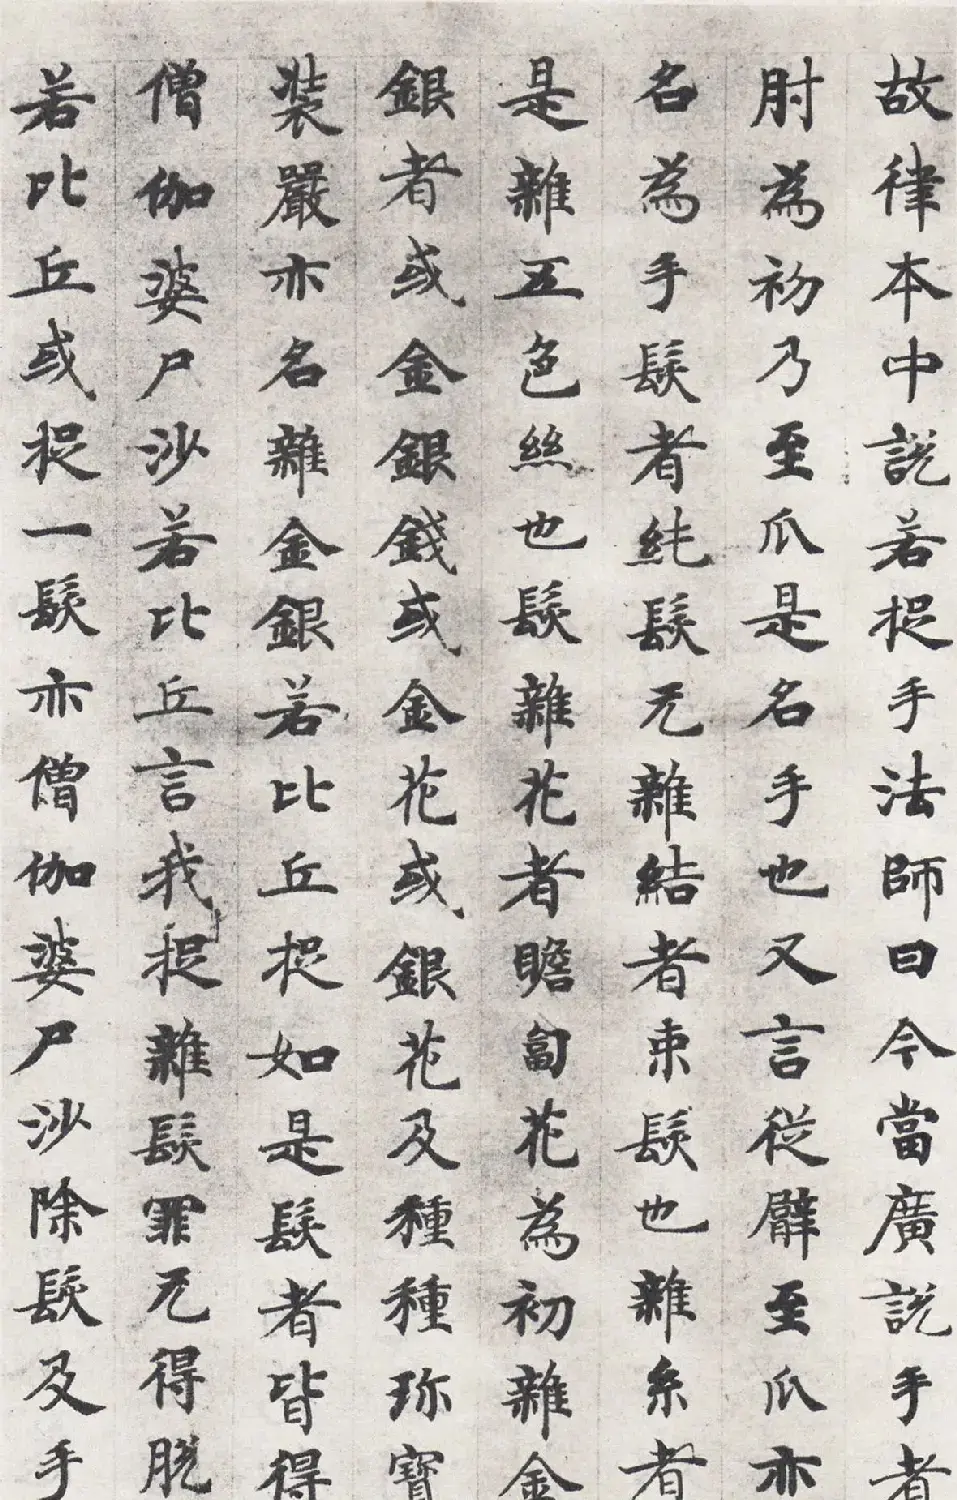 故律本中說若捉手法師曰今當廣說手者
肘為初乃至爪是名手也又言從臂至爪亦
名為手髮者純髮无雜結者束髮也雜糸者
是雜五色絲也髮雜花者瞻匐花為初雜金
銀者或金銀錢或金花或銀花及種種珎寶
裝嚴亦名雜金銀若比丘捉如是髮者皆得
僧伽婆尸沙若比丘言我捉雜髮罪无得脫
若比丘或捉一髮亦僧伽婆尸沙除髮及手